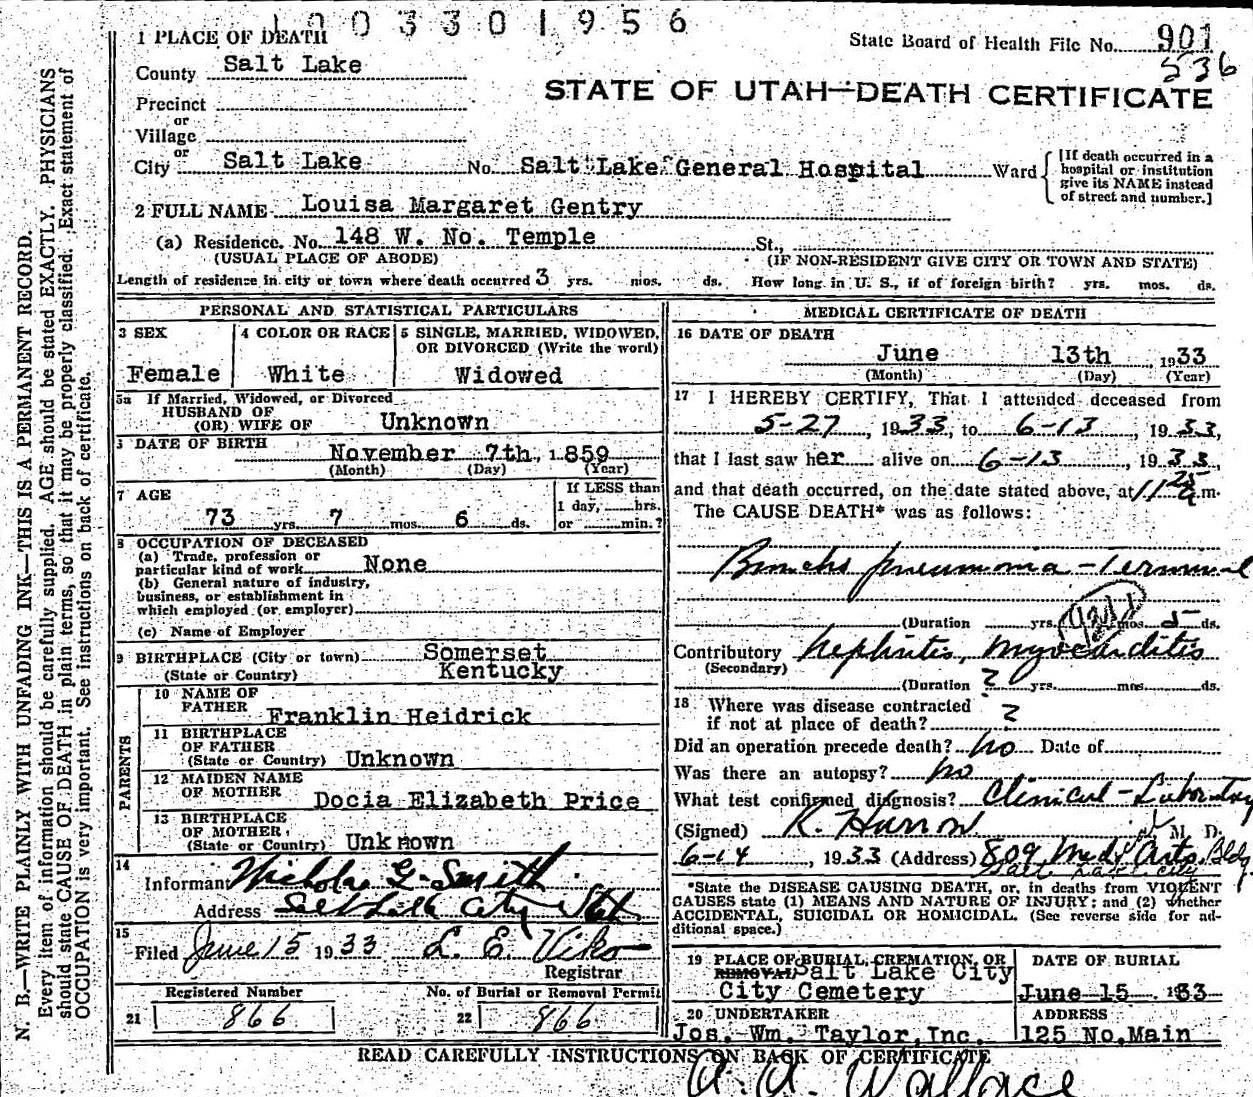 1003301956
1 PLACE OF DEATH
State Board of Health File No. 901
536
County Salt Lake
STATE OF UTAH—DEATH CERTIFICATE
Precinct
or
Village
or
City Salt Lake No. Salt Lake General Hospital Ward
[If death occurred in a
hospital or institution
give its NAME instead
of street and number.]
2 FULL NAME Louisa Margaret Gentry
(a) Residence. No. 148 W. No. Temple St.,
(USUAL PLACE OF ABODE) (IF NON-RESIDENT GIVE CITY OR TOWN AND STATE)
Length of residence in city or town where death occurred 3 yrs. mos. ds. How long in U. S., if of foreign birth? yrs. mos. ds.
PERSONAL AND STATISTICAL PARTICULARS
3 SEX
Female
4 COLOR OR RACE
White
5 SINGLE, MARRIED, WIDOWED,
OR DIVORCED (Write the word)
Widowed
5a If Married, Widowed, or Divorced
HUSBAND OF
(OR) WIFE OF Unknown
6 DATE OF BIRTH
November 7th, 1859
(Month) (Day) (Year)
7 AGE
73 yrs. 7 mos. 6 ds.
If LESS than
1 day, hrs.
or min.?
8 OCCUPATION OF DECEASED
(a) Trade, profession or
particular kind of work None
(b) General nature of industry,
business, or establishment in
which employed (or employer)
(c) Name of Employer
9 BIRTHPLACE (City or town) Somerset
(State or Country) Kentucky
PARENTS
10 NAME OF
FATHER Franklin Heidrick
11 BIRTHPLACE
OF FATHER
(State or Country) Unknown
12 MAIDEN NAME
OF MOTHER Docia Elizabeth Price
13 BIRTHPLACE
OF MOTHER
(State or Country) Unknown
14
Informant Nichols G. Smith
Address Salt Lake City Utah
15
Filed June 15 1933 L. E. Viko
Registrar
Registered Number No. of Burial or Removal Permit
21 866 22 866
MEDICAL CERTIFICATE OF DEATH
16 DATE OF DEATH
June 13th 1933
(Month) (Day) (Year)
17 I HEREBY CERTIFY, That I attended deceased from
5-27, 1933, to 6-13, 1933,
that I last saw her alive on 6-13, 1933,
and that death occurred, on the date stated above, at 11 25 a.m.
The CAUSE DEATH* was as follows:
Broncho pneumonia - terminal
(Duration yrs. mos. 5 ds.
Contributory Nephritis, myocarditis
(Secondary)
(Duration ? yrs. mos. ds.
18 Where was disease contracted
if not at place of death? ?
Did an operation precede death? no Date of
Was there an autopsy? no
What test confirmed diagnosis? Clinical - Laboratory
(Signed) R. Harrow M. D.
6-14, 1933 (Address) 809 Med. Arts Bldg.
Salt Lake City
*State the DISEASE CAUSING DEATH, or, in deaths from VIOLENT
CAUSES state (1) MEANS AND NATURE OF INJURY; and (2) whether
ACCIDENTAL, SUICIDAL OR HOMICIDAL. (See reverse side for ad-
ditional space.)
19 PLACE OF BURIAL, CREMATION, OR
REMOVAL Salt Lake City
City Cemetery
DATE OF BURIAL
June 15 1933
20 UNDERTAKER
Jos. Wm. Taylor, Inc.
ADDRESS
125 No. Main
READ CAREFULLY INSTRUCTIONS ON BACK OF CERTIFICATE
A. A. Wallace
N. B.—WRITE PLAINLY WITH UNFADING INK—THIS IS A PERMANENT RECORD.
Every item of information should be carefully supplied. AGE should be stated EXACTLY. PHYSICIANS
should state CAUSE OF DEATH in plain terms, so that it may be properly classified. Exact statement of
OCCUPATION is very important. See instructions on back of certificate.